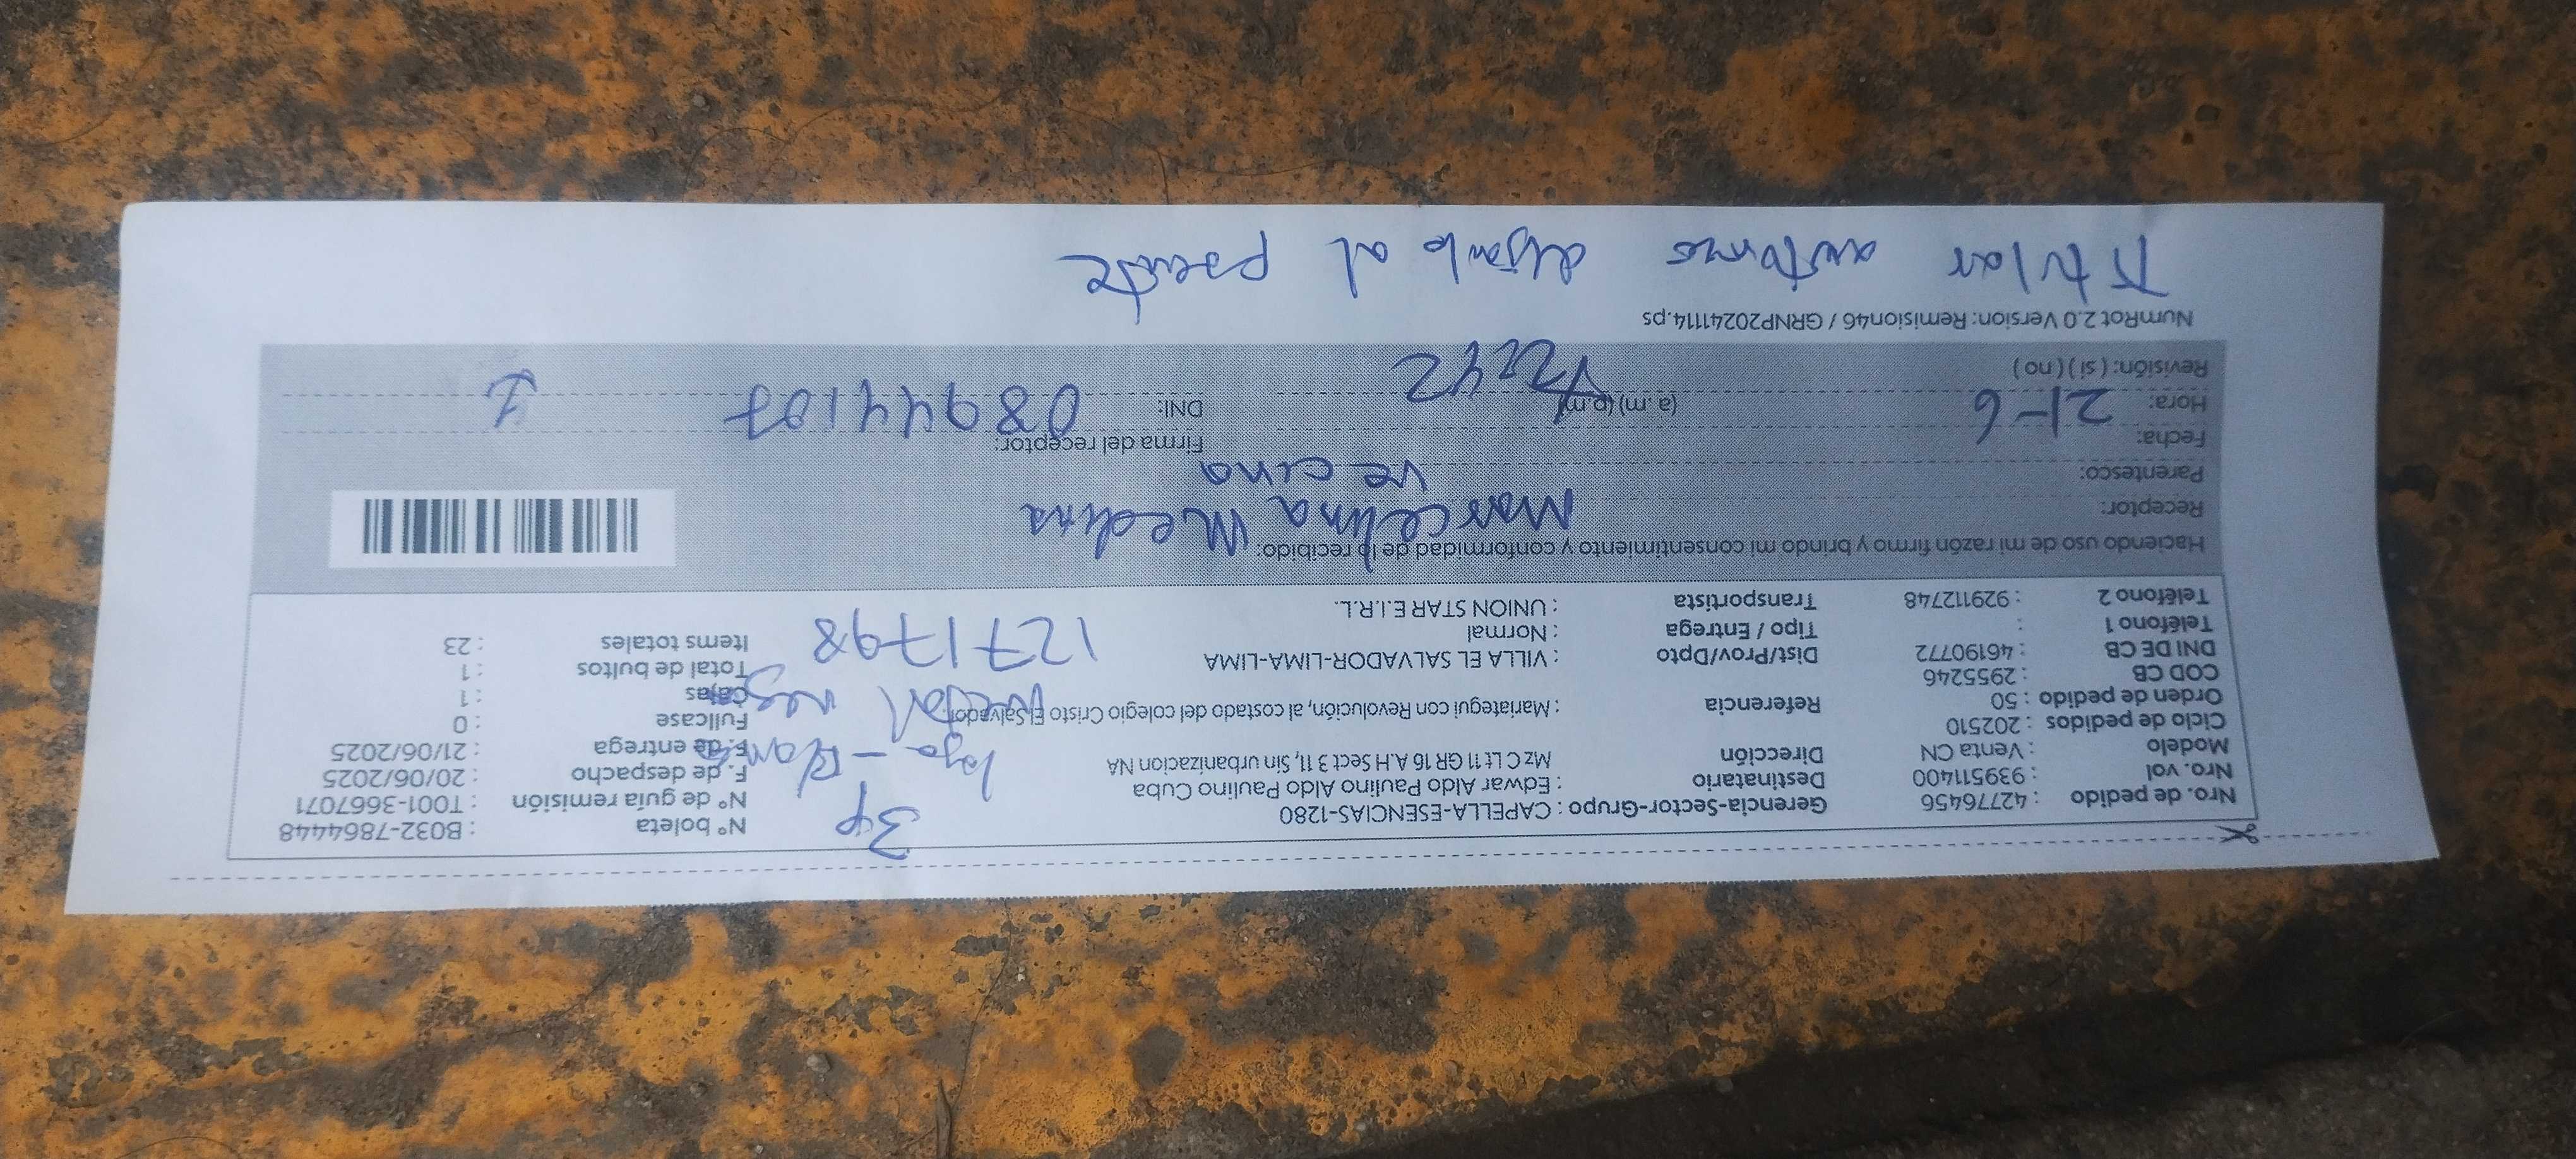 Nro. de pedido : 42776456
Nro. vol : 939511400
Modelo : Venta CN
Ciclo de pedidos : 202510
Orden de pedido : 50
COD CB : 2955246
DNI DE CB : 46190772
Teléfono 1 :
Teléfono 2 : 929112748
Gerencia-Sector-Grupo : CAPELLA-ESENCIAS-1280
Destinatario : Edwar Aldo Paulino Aldo Paulino Cuba
Dirección Mz C Lt 11 GR 16 A.H Sect 3 11, Sin urbanizacion NA
Referencia : Mariategui con Revolución, al costado del colegio Cristo El Salvador.
Dist/Prov/Dpto : VILLA EL SALVADOR-LIMA-LIMA
Tipo / Entrega : Normal
Transportista : UNION STAR E.I.R.L.
3p
1271798
N° boleta : B032-7864448
N° de guía remisión : T001-3667071
F. de despacho : 20/06/2025
F. de entrega : 21/06/2025
Fullcase : 0
Cajas : 1
Total de bultos : 1
Items totales : 23
Haciendo uso de mi razón firmo y brindo mi consentimiento y conformidad de lo recibido:
Receptor: Marcelina Medina
Parentesco: vecina
Fecha: 21-6
Firma del receptor:
Hora: (a. m) (p.m)
DNI: 08944107
Revisión: ( si ) ( no )
NumRot 2.0 Version: Remision46 / GRNP20241114.ps
Titular autorizo dejarlo al